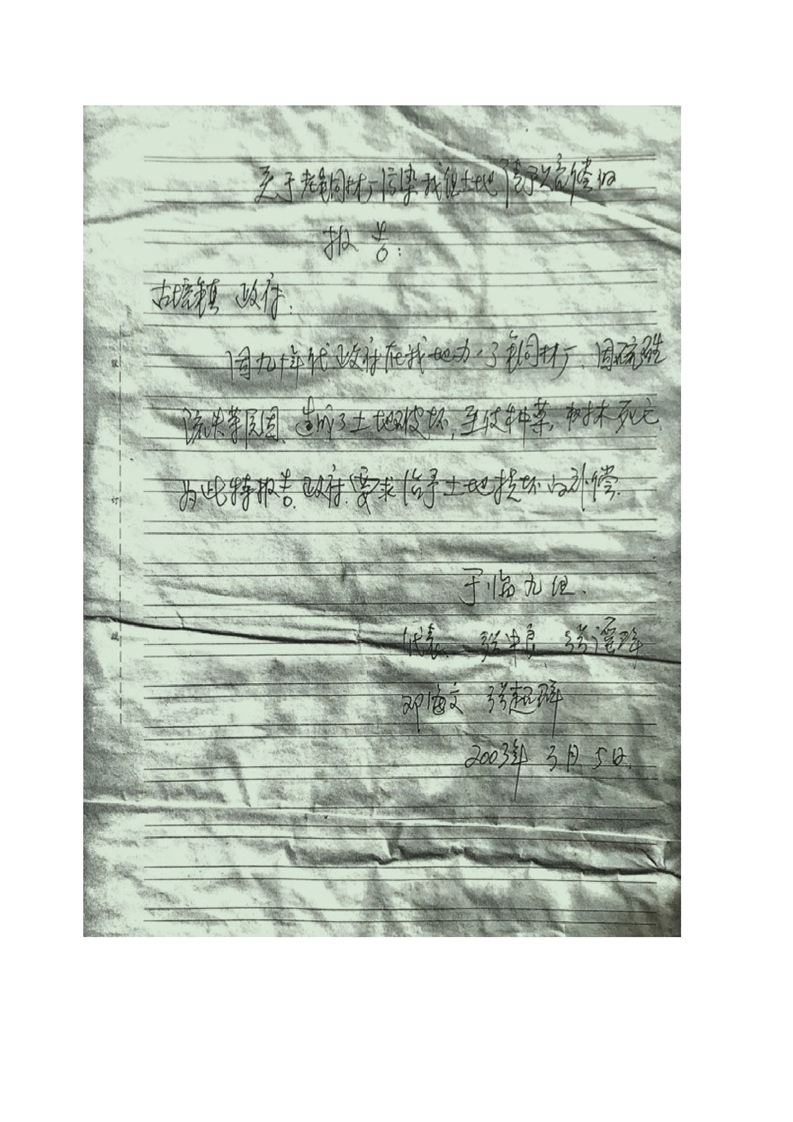 关于老铜材厂污染我组土地请予以赔偿的
报告:
古塘镇 政府:
因九十年代政府在我地办了铜材厂、因硫酸
流失等原因、造成了土地破坏,至使种菜,树林死亡
为此特报告政府,要求给予土地损坏的补偿.
九组.
代表. 张中良、张
邓海文 张超辉
2003年 3月 5日.
订